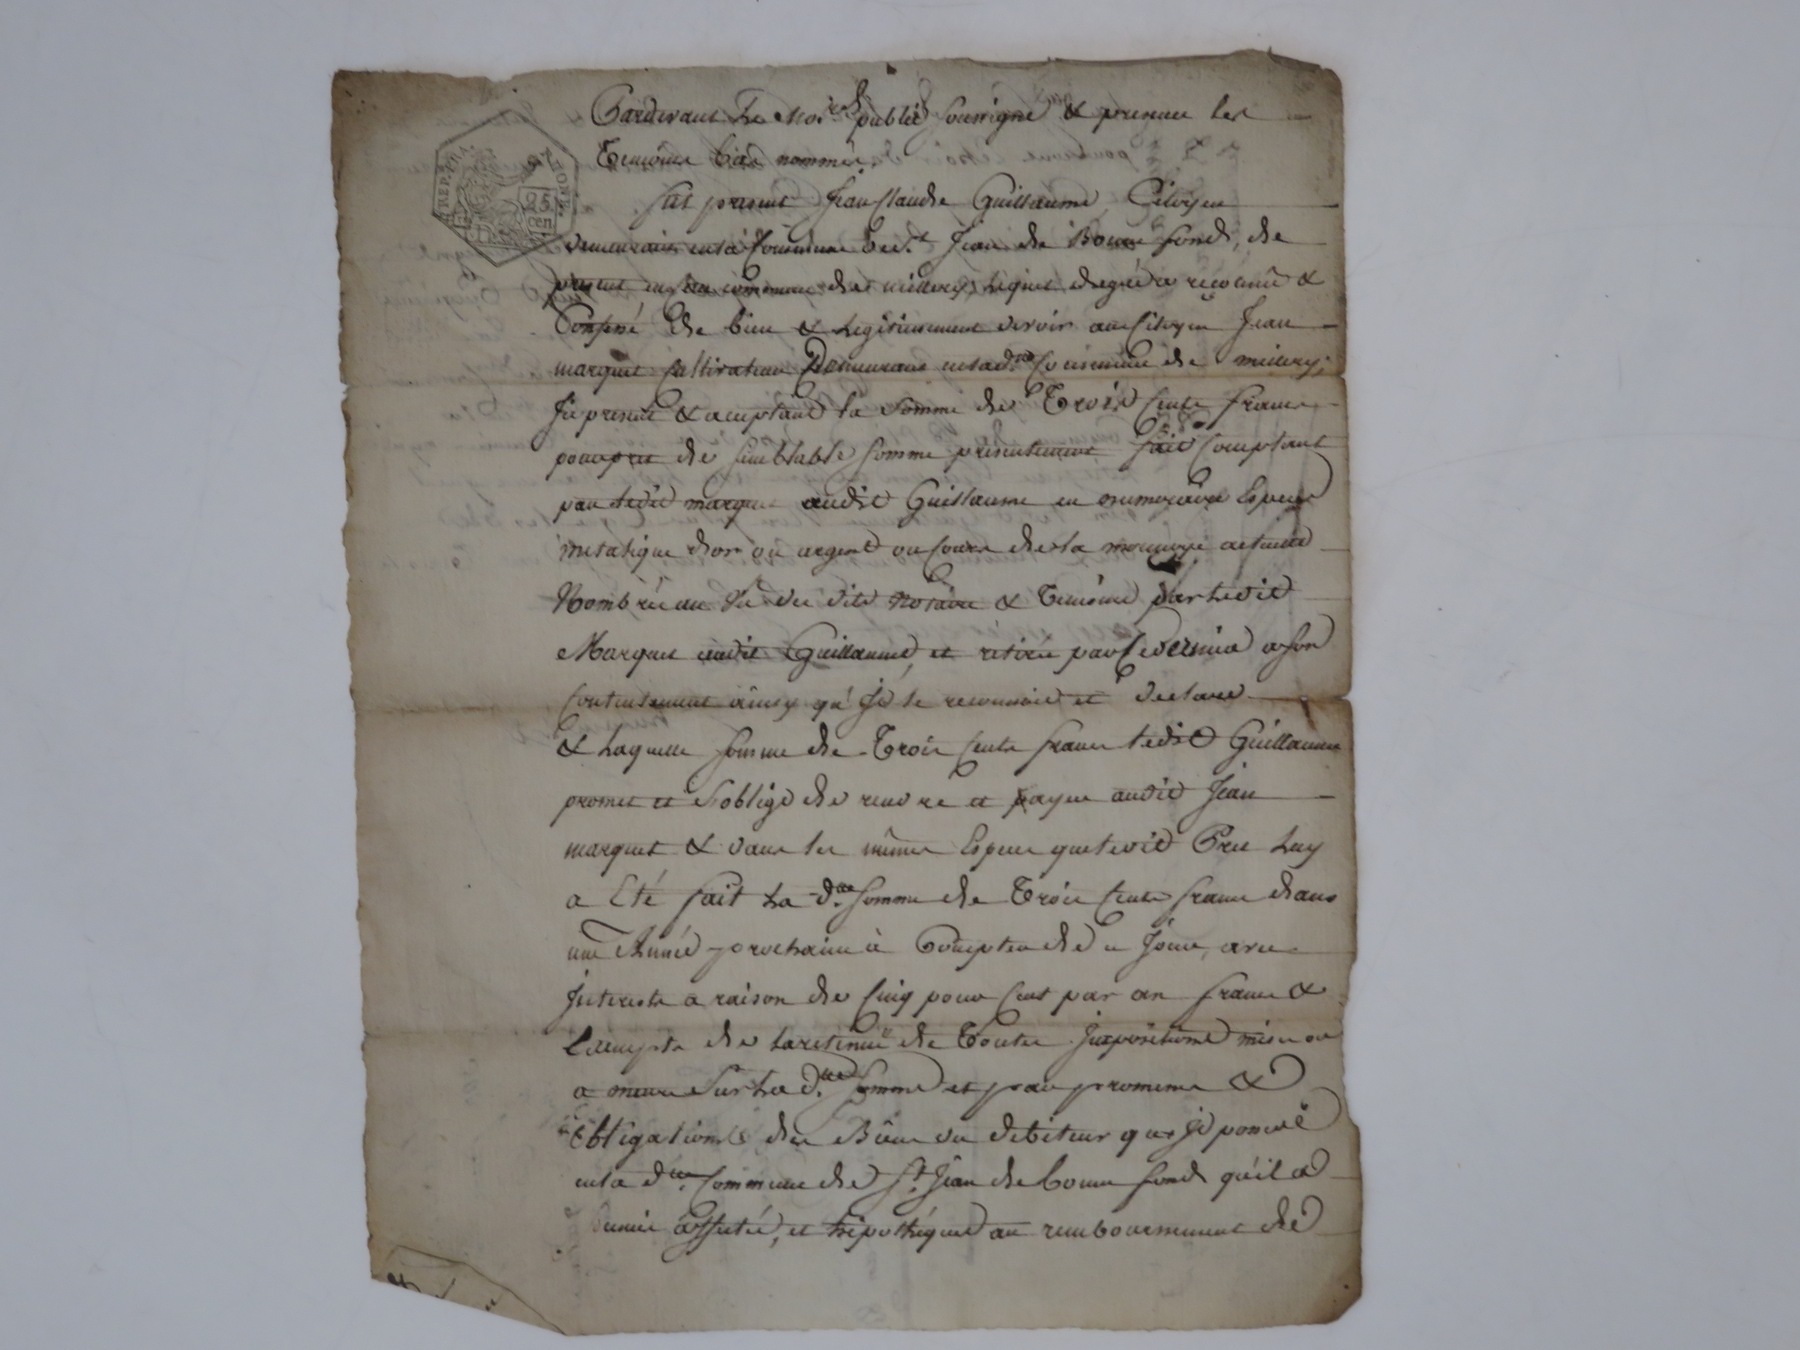 REP. FRA.
25
cen
Pardevant Le Not.re public soussigné & presence les
Temoins bas nommés
fut present Jean Claude Guillaume Citoyen
demeurant en la Commune de s.t Jean de Bonne fond, de
present en la commune de millery, lequel de gré a reconnu &
Confessé de bien & legitimement devoir au Citoyen Jean
marquet Cultivateur Demeurant en la d.te Commune de millery,
Ji present & aceptant la somme de Trois Cents francs
pour pret de semblable somme presentement fait Comptant
par ledit marquet audit Guillaume en numeraire Espece
metalique d'or ou argent au Cours de la monnoye actuelle
Nombrée au Vû des dits Notaire & Temoins par ledit
Marquet audit Guillaume, et retirée par Ce dernier a son
Contentement ainsy qu'Jl le reconnoit et declare
& Laquelle somme de Trois Cents francs ledit Guillaume
promet et s'oblige de rendre et payer audit Jean
marquet & dans les mêmes Especes que ledit Pret Luy
a Eté fait La d.te somme de Trois Cents francs dans
une Année prochaine à Compter de ce Jour, avec
Jnterets a raison de Cinq pour Cent par an francs &
Exempts de la retenue de Toutes Jmpositions mises ou
a mettre sur La d.te somme et par promesse &
obligations des Biens du debiteur que Jl possede
en la d.te Commune de S.t Jean de bonne fond qu'il a
affecté, et hipothéqué au remboursement de